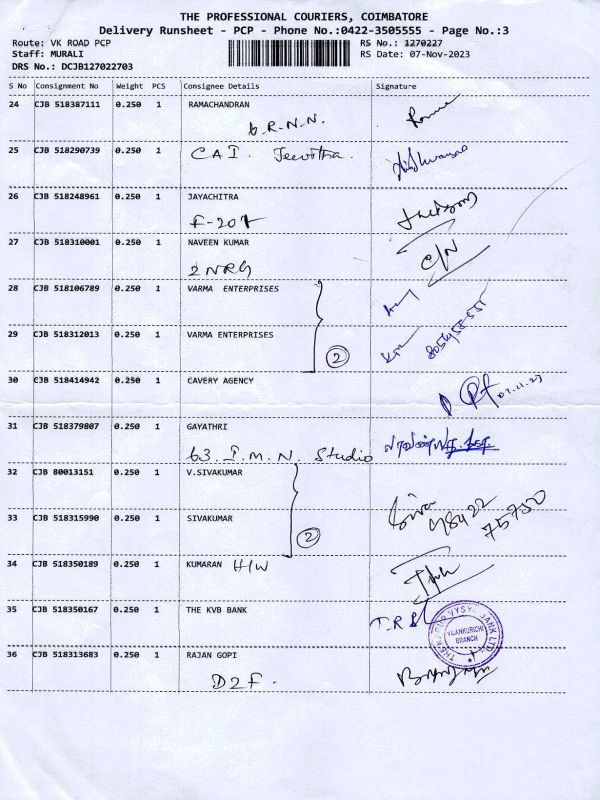 THE PROFESSIONAL COURIERS, COIMBATORE
Delivery Runsheet - PCP - Phone No.:0422-3505555 - Page No.:3
Route: VK ROAD PCP RS No.: 1270227
Staff: MURALI RS Date: 07-Nov-2023
DRS No.: DCJB127022703
S No Consignment No Weight PCS Consignee Details Signature
24 CJB 518387111 0.250 1 RAMACHANDRAN
B.R.N.N.
25 CJB 518290739 0.250 1 CAI. Jeevitha.
26 CJB 518248961 0.250 1 JAYACHITRA
F-207
27 CJB 518310001 0.250 1 NAVEEN KUMAR C/N
2 NRG
28 CJB 518106789 0.250 1 VARMA ENTERPRISES
29 CJB 518312013 0.250 1 VARMA ENTERPRISES
2
30 CJB 518414942 0.250 1 CAVERY AGENCY 07.11.23
31 CJB 518379807 0.250 1 GAYATHRI
63. I.M.N. Studio
32 CJB 80013151 0.250 1 V.SIVAKUMAR
33 CJB 518315990 0.250 1 SIVAKUMAR Siva 98422 75750
2
34 CJB 518350189 0.250 1 KUMARAN H/W
35 CJB 518350167 0.250 1 THE KVB BANK
VYSYA BANK LTD
VILANKURICHI
BRANCH
36 CJB 518313683 0.250 1 RAJAN GOPI
D2F.